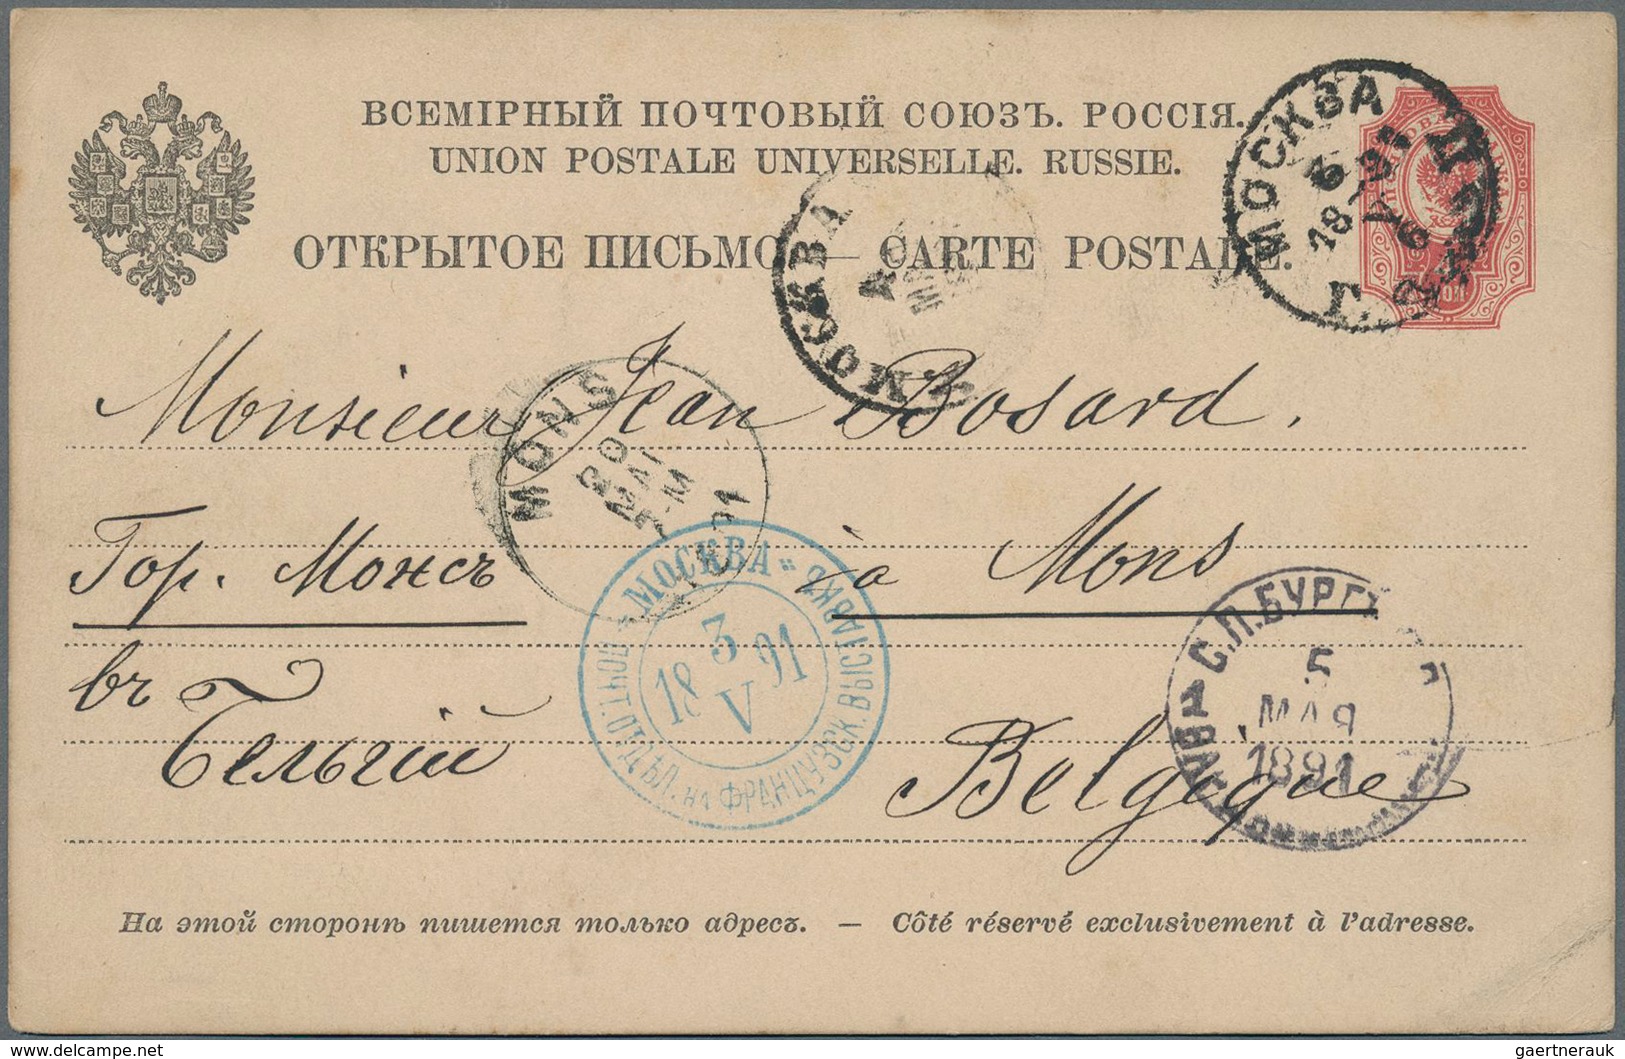 ВСЕМІРНЫЙ ПОЧТОВЫЙ СОЮЗЪ. РОССІЯ.
UNION POSTALE UNIVERSELLE. RUSSIE.
ОТКРЫТОЕ ПИСЬМО — CARTE POSTALE.
МОСКВА
18
V
МОСКВА
Monsieur Jean Bosard.
MONS
91
Гор. Монсъ à Mons
МОСКВА
3
18 91
V
ПОЧТ. ОТДѢЛ. НА ФРАНЦУЗСК. ВЫСТАВКѢ
С.П.БУРГЪ
5
МАЯ
1891
1
въ Бельгіи Belgique
На этой сторонѣ пишется только адресъ. — Côté réservé exclusivement à l'adresse.
delcampe.net
gaertnerauk